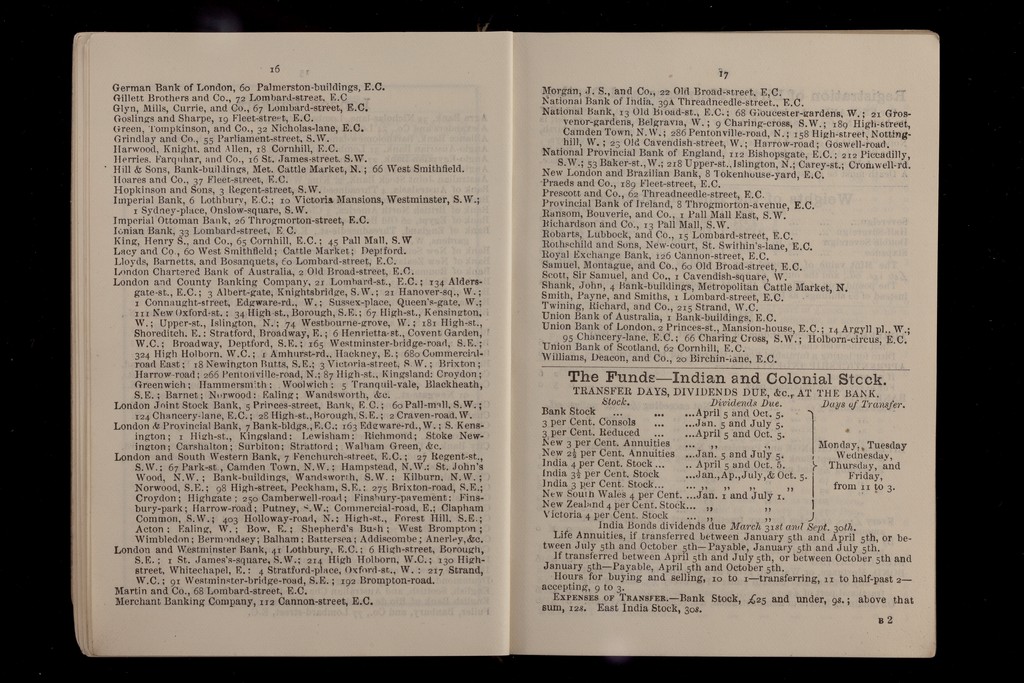 16
German Bank of London, 60 Palmerston-buildings, E.C.
Gillett Brothers and Co., 72 Lombard-street, E.C
Glyn, Mills, Currie, and Co., 67 Lombard-street, E.C.
Goslings and Sharpe, 19 Fleet-street, E.C.
Green, Tompkinson, and Co., 32 Nicholas-lane, E.C.
Grindlay and Co., 55 Parliament-street, S.W.
Harwood, Knight, and Allen, 18 Cornhill, E.C.
Herries, Farquhar, and Co., 16 St. James-street, S.W.
Hill & Sons, Bank-buildings, Met. Cattle Market, N.; 66 West Smithfield.
Hoares and Co., 37 Fleet-street, E.C.
Hopkinson and Sons, 3 Regent-street, S.W.
Imperial Bank, 6 Lothbury, E.C.; 10 Victoria Mansions, Westminster, S.W.;
1 Sydney-place, Onslow-square, S.W.
Imperial Ottoman Bank, 26 Throgmorton-street, E.C.
Ionian Bank, 33 Lombard-street, E.C.
King, Henry S., and Co., 65 Cornhill, E.C.; 45 Pall Mall, S.W
Lacy and Co., 60 West Smithfield; Cattle Market; Deptford.
Lloyds, Barnetts, and Bosanquets, 60 Lombard-street, E.C.
London Chartered Bank of Australia, 2 Old Broad-street, E.C.
London and County Banking Company, 21 Lombard-st., E.C.; 134 Alders-
gate-st., E.C.; 3 Albert-gate, Knightsbridge, S.W.; 21 Hanover-sq., W.;
1 Connaught-street, Edgware-rd., W.; Sussex-place, Queen's-gate, W.;
111 New Oxford-st.; 34 High-st., Borough, S.E.; 67 High-st., Kensington,
W.; Upper-st., Islington, N.; 74 Westbourne-grove, W.; 181 High-st.,
Shoreditch, E.; Stratford, Broadway, E.; 6 Henrietta-st., Covent Garden,
W.C.; Broadway, Deptford, S.E.; 165 Westminster-bridge-road, S.E.;
324 High Holborn, W.C.; 1 Amhurst-rd., Hackney, E.; 680 Commercial-
road East; 18 Newington Butts, S.E.; 3 Victoria-street, S.W.; Brixton;
Harrow-road; 266 Pentonville-road, N.; 87 High-st., Kingsland; Croydon;
Greenwich; Hammersmith; Woolwich; 5 Tranquil-vale, Blackheath,
S.E.; Barnet; Norwood; Ealing; Wandsworth, &c.
London Joint Stock Bank, 5 Princes-street, Bank, E.C.; 69 Pall-mall, S.W.;
124 Chancery-lane, E.C.; 28 High-st., Borough, S.E.; 2 Craven-road, W.
London & Provincial Bank, 7 Bank-bldgs., E.C.; 163 Edgware-rd., W.; S. Kens-
ington; 1 High-st., Kingsland; Lewisham; Richmond; Stoke New-
ington; Carshalton; Surbiton; Stratford; Walham Green, &c.
London and South Western Bank, 7 Fenchurch-street, E.C.; 27 Regent-st.,
S.W.; 67 Park-st., Camden Town, N.W.; Hampstead, N.W.; St. John's
Wood, N.W.; Bank-buildings, Wandsworth, S.W.; Kilburn, N.W.;
Norwood, S.E.; 98 High-street, Peckham, S.E.; 275 Brixton-road, S.E.;
Croydon; Highgate; 250 Camberwell-road; Finsbury-pavement; Fins-
bury-park; Harrow-road; Putney, S.W.; Commercial-road, E.; Clapham
Common, S.W.; 403 Holloway-road, N.; High-st., Forest Hill, S.E.;
Acton; Ealing, W.; Bow, E.; Shepherd's Bush; West Brompton;
Wimbledon; Bermondsey; Balham; Battersea; Addiscombe; Anerley, &c.
London and Westminster Bank, 41 Lothbury, E.C.; 6 High-street, Borough,
S.E.; 1 St. James's-square, S.W.; 214 High Holborn, W.C.; 130 High-
street, Whitechapel, E.; 4 Stratford-place, Oxford-st., W.; 217 Strand,
W.C.; 91 Westminster-bridge-road, S.E.; 192 Brompton-road.
Martin and Co., 68 Lombard-street, E.C.
Merchant Banking Company, 112 Cannon-street, E.C.
17
Morgan, J. S., and Co., 22 Old Broad-street, E.C.
National Bank of India, 39A Threadneedle-street., E.C.
National Bank, 13 Old Broad-st., E.C.; 68 Gloucester-gardens, W.; 21 Gros-
venor-gardens, Belgravia, W.; 9 Charing-cross, S.W.; 189 High-street,
Camden Town, N.W.; 286 Pentonville-road, N.; 158 High-street, Notting-
hill, W.; 25 Old Cavendish-street, W.; Harrow-road; Goswell-road.
National Provincial Bank of England, 112 Bishopsgate, E.C.; 212 Piccadilly,
S.W.; 53 Baker-st., W.; 218 Upper-st., Islington, N.; Carey-st.; Cromwell-rd.
New London and Brazilian Bank, 8 Tokenhouse-yard, E.C.
Praeds and Co., 189 Fleet-street, E.C.
Prescott and Co., 62 Threadneedle-street, E.C.
Provincial Bank of Ireland, 8 Throgmorton-avenue, E.C.
Ransom, Bouverie, and Co., 1 Pall Mall East, S.W.
Richardson and Co., 13 Pall Mall, S.W.
Robarts, Lubbock, and Co., 15 Lombard-street, E.C.
Rothschild and Sons, New-court, St. Swithin's-lane, E.C.
Royal Exchange Bank, 126 Cannon-street, E.C.
Samuel, Montague, and Co., 60 Old Broad-street, E.C.
Scott, Sir Samuel, and Co., 1 Cavendish-square, W.
Shank, John, 4 Bank-buildings, Metropolitan Cattle Market, N.
Smith, Payne, and Smiths, 1 Lombard-street, E.C.
Twining, Richard, and Co., 215 Strand, W.C.
Union Bank of Australia, 1 Bank-buildings, E.C.
Union Bank of London, 2 Princes-st., Mansion-house, E.C.; 14 Argyll pl., W.;
95 Chancery-lane, E.C.; 66 Charing Cross, S.W.; Holborn-circus, E.C.
Union Bank of Scotland, 62 Cornhill, E.C.
Williams, Deacon, and Co., 20 Birchin-lane, E.C.
The Funds—Indian and Colonial Stock.
TRANSFER DAYS, DIVIDENDS DUE, &c., AT THE BANK.
Stock. Dividends Due. Days of Transfer.
Bank Stock ... ... ...April 5 and Oct. 5.
3 per Cent. Consols ... ...Jan. 5 and July 5.
3 per Cent. Reduced ... ...April 5 and Oct. 5.
New 3 per Cent. Annuities ... „ „ Monday, Tuesday
New 2½ per Cent. Annuities ...Jan. 5 and July 5. Wednesday,
India 4 per Cent. Stock ... .. April 5 and Oct. 5. Thursday, and
India 3½ per Cent. Stock ...Jan., Ap., July, & Oct. 5. Friday,
India 3 per Cent. Stock... ... „ „ „ „ from 11 to 3.
New South Wales 4 per Cent. ...Jan. 1 and July 1.
New Zealand 4 per Cent. Stock... „ „
Victoria 4 per Cent. Stock ... „ „
India Bonds dividends due March 31st and Sept. 30th.
Life Annuities, if transferred between January 5th and April 5th, or be-
tween July 5th and October 5th—Payable, January 5th and July 5th.
If transferred between April 5th and July 5th, or between October 5th and
January 5th—Payable, April 5th and October 5th.
Hours for buying and selling, 10 to 1—transferring, 11 to half-past 2—
accepting, 9 to 3.
EXPENSES OF TRANSFER.—Bank Stock, £25 and under, 9s.; above that
sum, 12s. East India Stock, 30s.
B 2